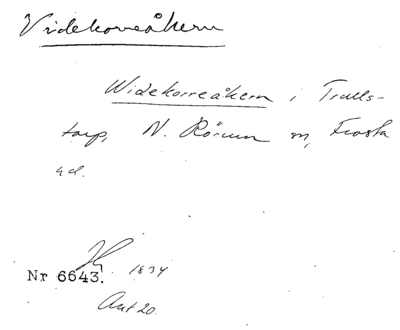 Videkorreåkern
Widekorreåkern i Trulls-
torp, N. Rörum sn, Frosta
hd.
Nr 6643. 1834
Akt 20.